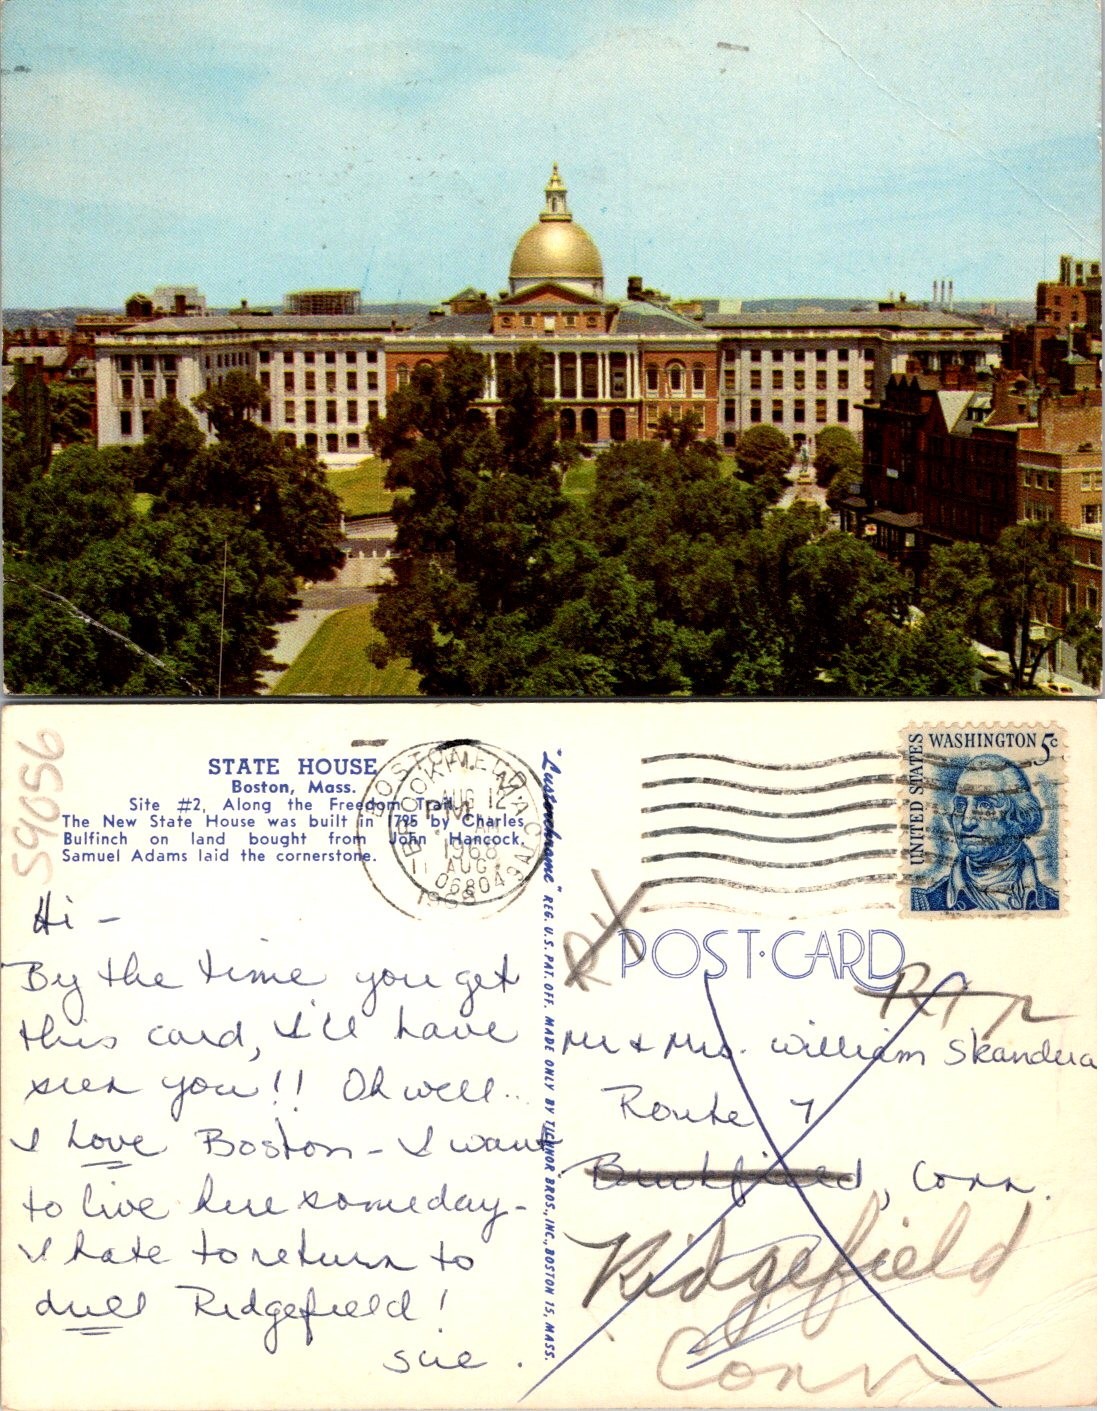 59056
STATE HOUSE
Boston, Mass.
Site #2, Along the Freedom Trail.
The New State House was built in 1795 by Charles
Bulfinch on land bought from John Hancock.
Samuel Adams laid the cornerstone.
BOSTON
BROOKFIELD
AUG 12
PM
AM
1968
11 AUG
06804
1968
"Lusterchrome" REG. U.S. PAT. OFF. MADE ONLY BY TICHNOR BROS., INC., BOSTON 15, MASS.
UNITED STATES
WASHINGTON 5c
POST·CARD
Hi –
By the time you get
this card, I'll have
seen you!! Oh well...
I love Boston – I want
to live here someday –
I hate to return to
dull Ridgefield!
Sue.
Mr & Mrs. William Skandera
Route 7
Conn.
Ridgefield
Conn